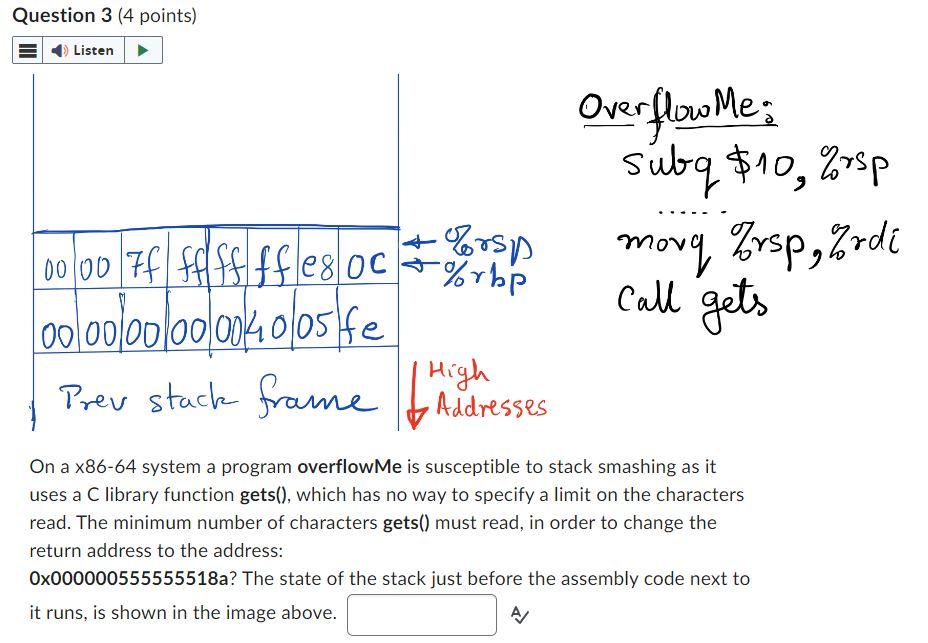 Question 3 (4 points)
Listen
OverflowMe:
subq $10, %rsp
.......
movq %rsp, %rdi
call gets
00 00 7f ff ff ff e8 0c
%rsp
%rbp
00 00 00 00 00 40 05 fe
Prev stack frame
High
Addresses
On a x86-64 system a program overflowMe is susceptible to stack smashing as it
uses a C library function gets(), which has no way to specify a limit on the characters
read. The minimum number of characters gets() must read, in order to change the
return address to the address:
0x000000555555518a? The state of the stack just before the assembly code next to
it runs, is shown in the image above.